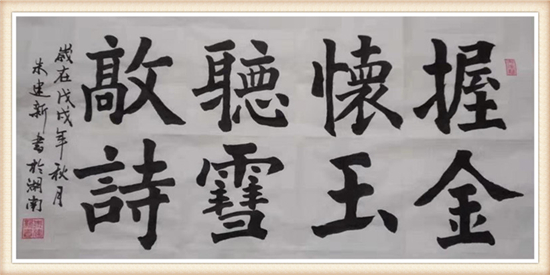 握金
懷玉
聽雪
敲詩
歲在戊戌年秋月
朱建新書於湖南